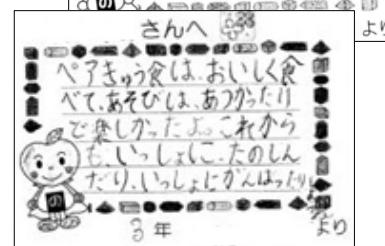 の
より
さんへ
ペアきゅう食は、おいしく食
べて、あそびは、あつかったり
で楽しかったよ。これから
も、いっしょに、たのしん
だり、いっしょにがんばったり
の
3年
より